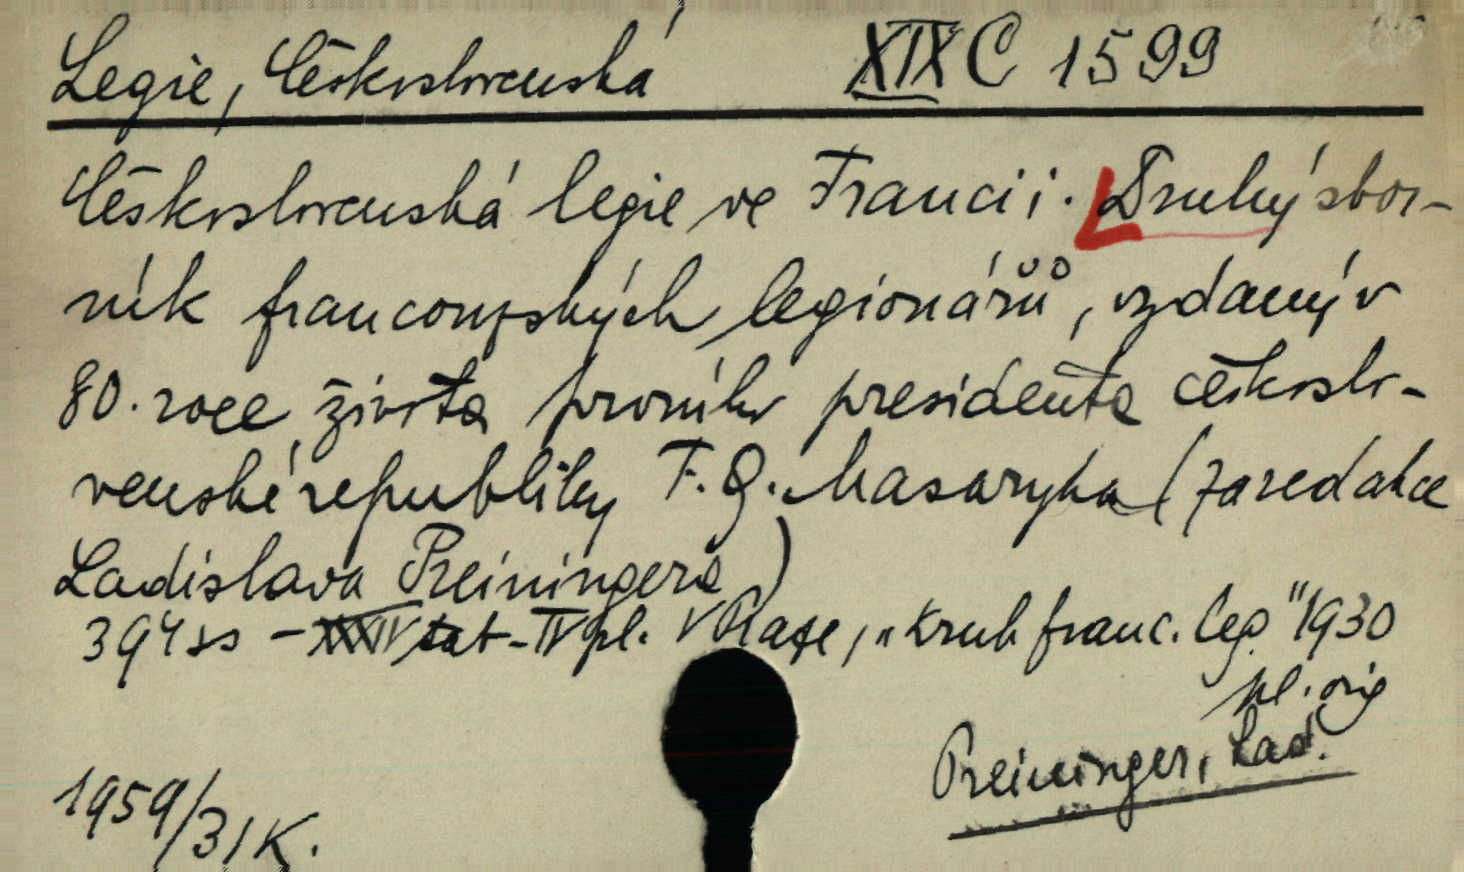 Legie, Československá XIX C 1599
Československá legie ve Francii. Druhý sbor-
ník francouzských legionářů, vydaný v
80. roce života prvního presidenta českoslo-
venské republiky T. G. Masaryka (za redakce
Ladislava Preiningera)
394 ss - XXIV tab - IV pl. V Praze, „Kruh franc. leg." 1930
pl. orig
Preininger, Lad.
1959/31 K.